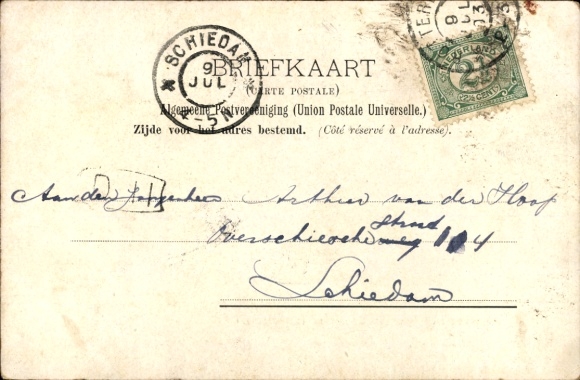 SCHIEDAM
9
JUL
4-5N
TER
9
JUL
03
NEDERLAND
2½
2½ CENT
BRIEFKAART
(CARTE POSTALE)
Algemeene Postvereeniging (Union Postale Universelle.)
Zijde voor het adres bestemd. (Côté réservé à l'adresse).
Aan den Jongenheer Arthur van der Hoop
straat
Overschiesche weg 114
Schiedam